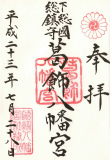 奉拝
下総国
総鎮守
葛飾八幡宮
平成二十三年七月二十八日